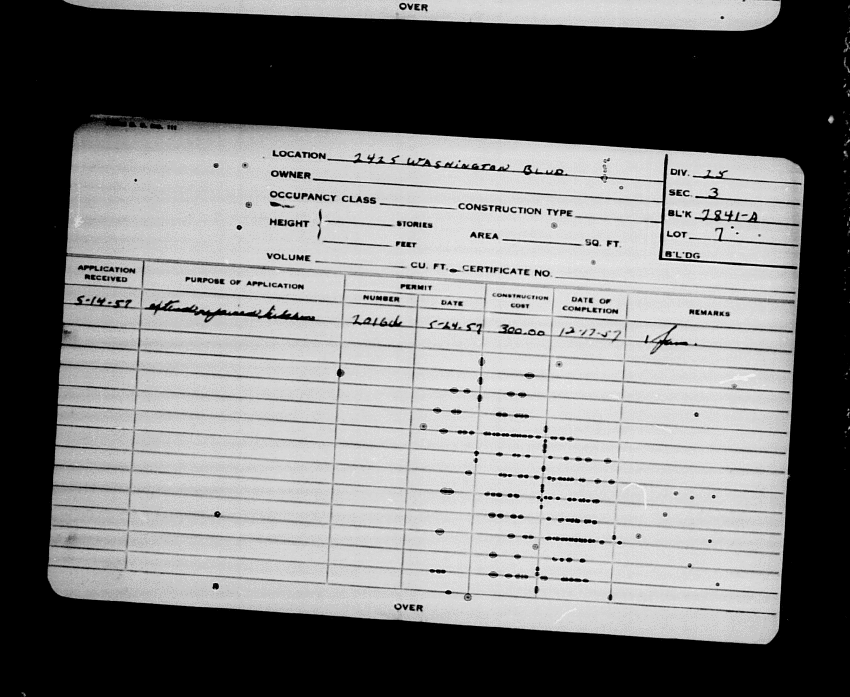 OVER
LOCATION 2425 WASHINGTON BLVD.
OWNER
OCCUPANCY CLASS CONSTRUCTION TYPE
HEIGHT STORIES AREA SQ. FT.
FEET
VOLUME CU. FT. CERTIFICATE NO.
DIV. 25
SEC. 3
BL'K 7841-A
LOT 7
B'L'DG
APPLICATION RECEIVED PURPOSE OF APPLICATION PERMIT NUMBER DATE CONSTRUCTION COST DATE OF COMPLETION REMARKS
5-14-57 5-24-57 300.00 12-17-57 1 fam.
OVER